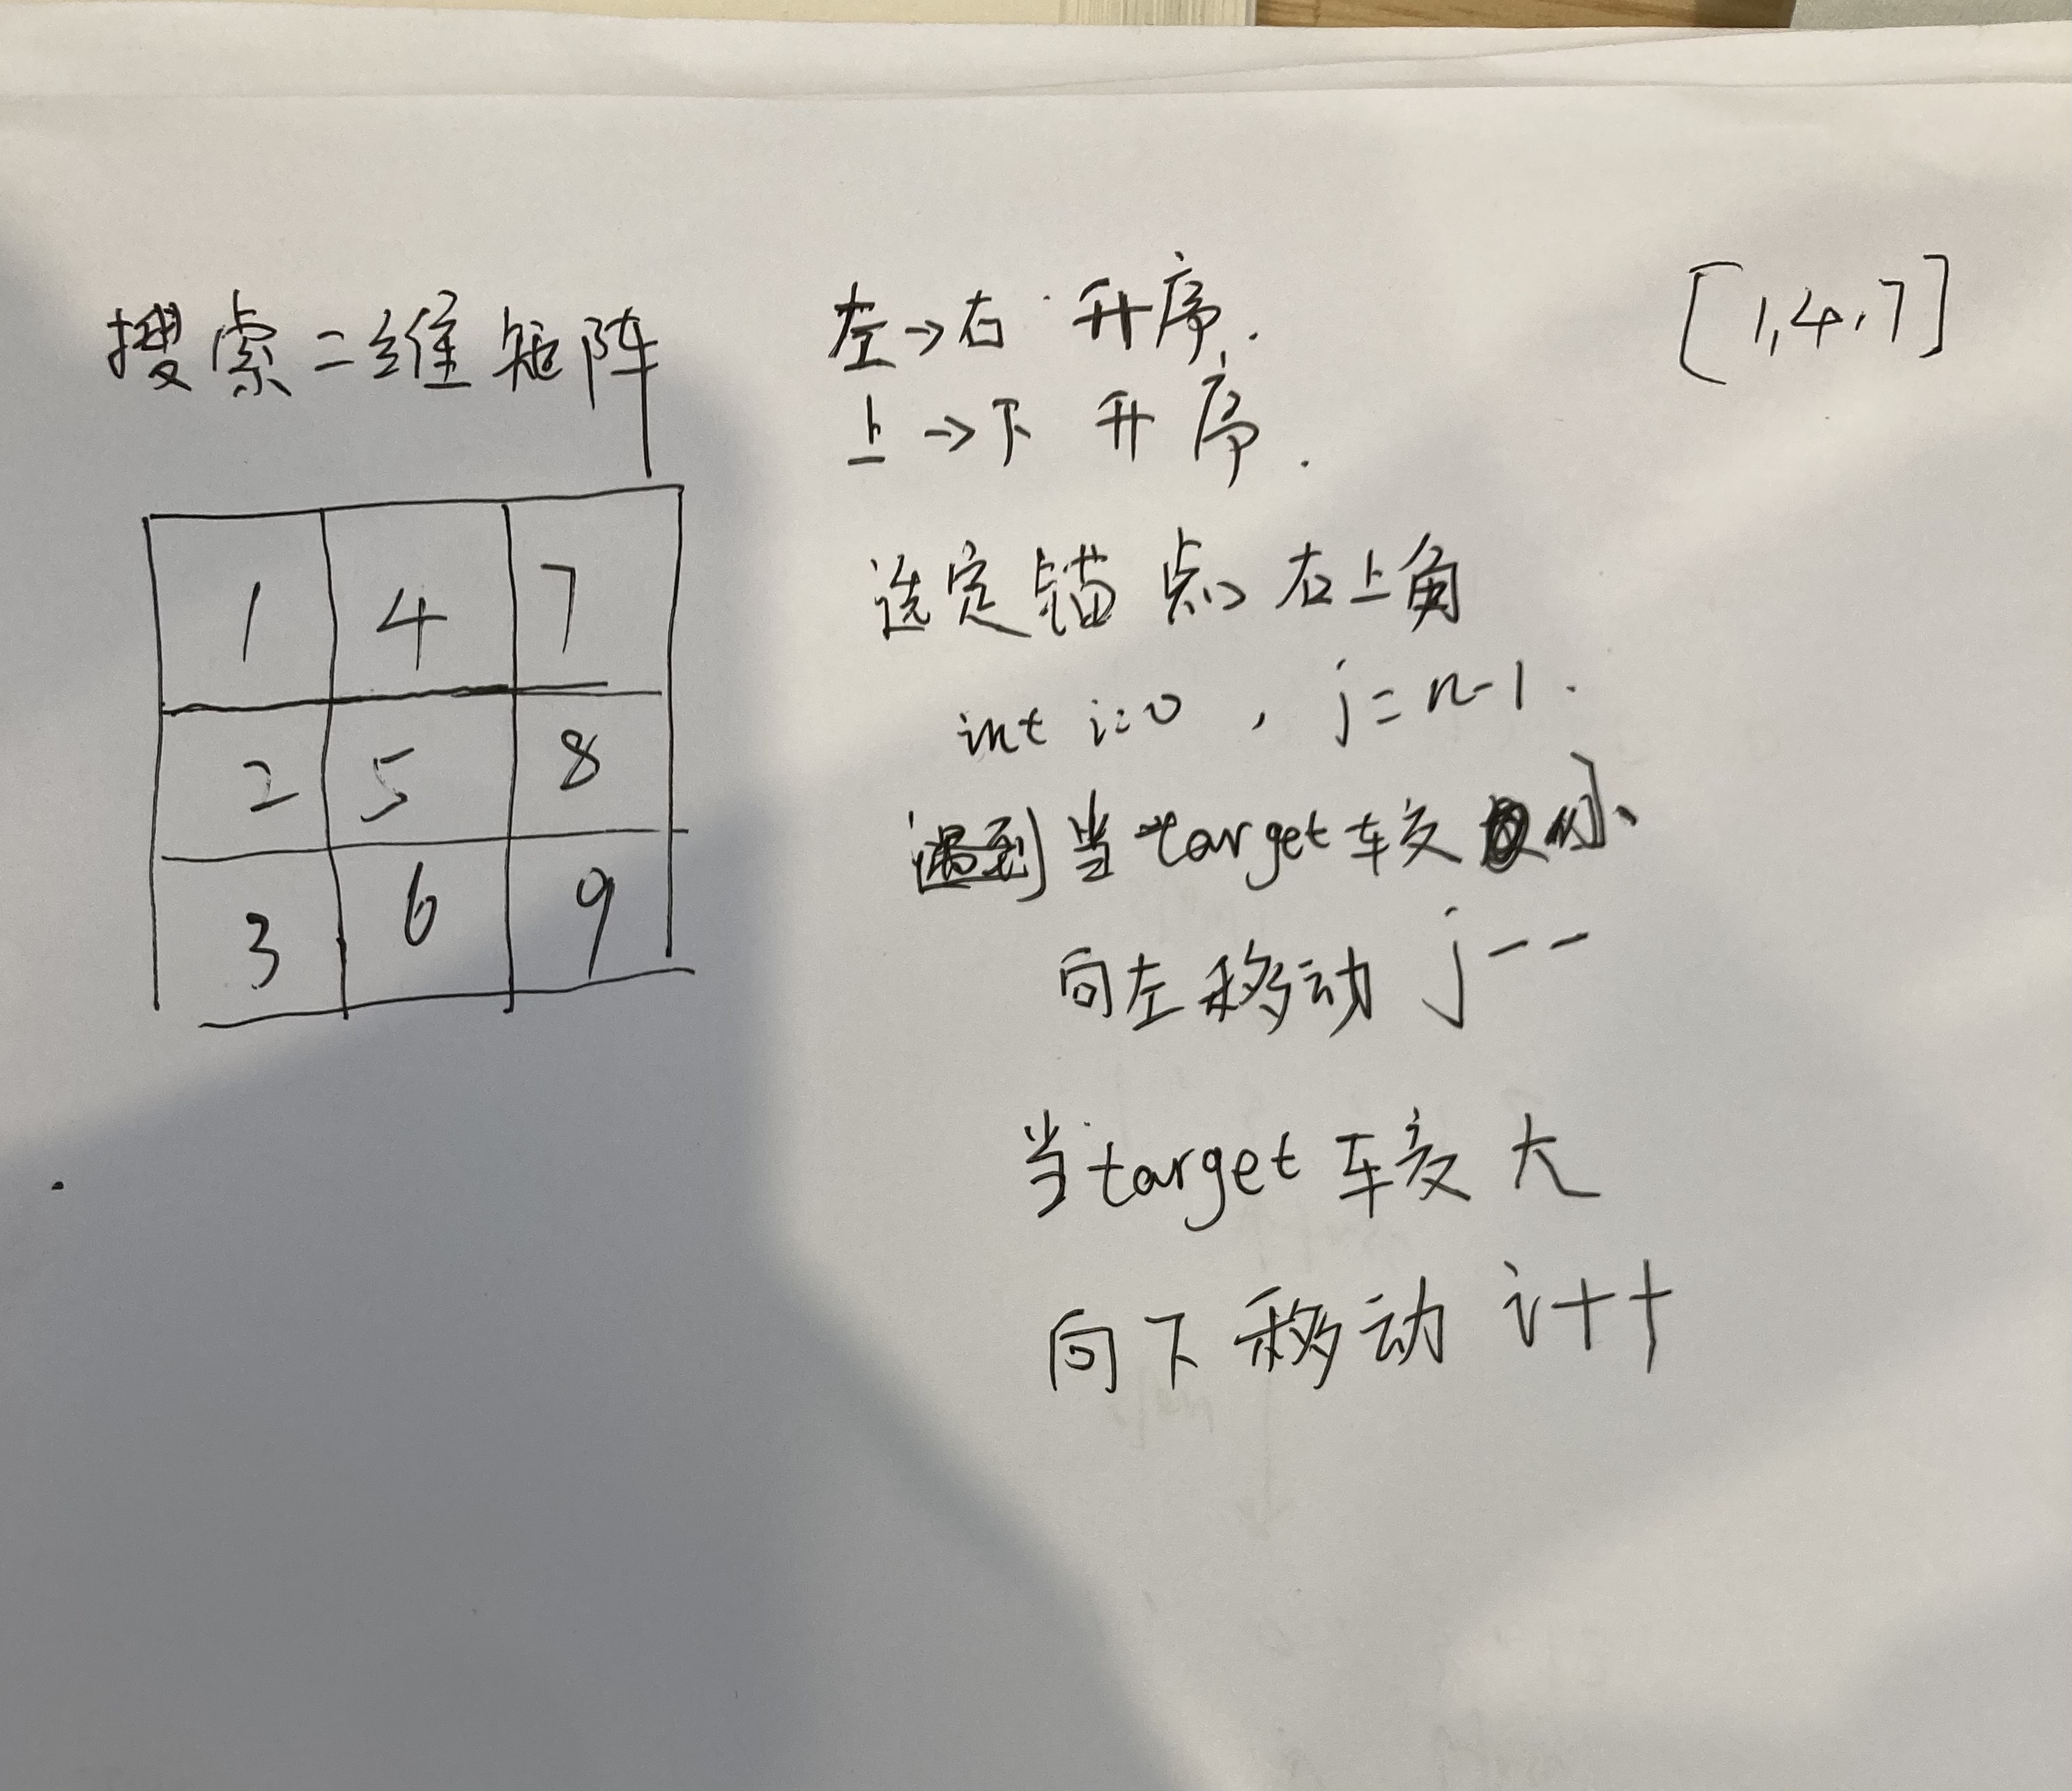 搜索二维矩阵
1 4 7
2 5 8
3 6 9
左→右 升序.
上→下 升序.
[1,4,7]
选定锚点、右上角
int i=0, j=n-1.
当target较小
向左移动 j--
当target较大
向下移动 i++